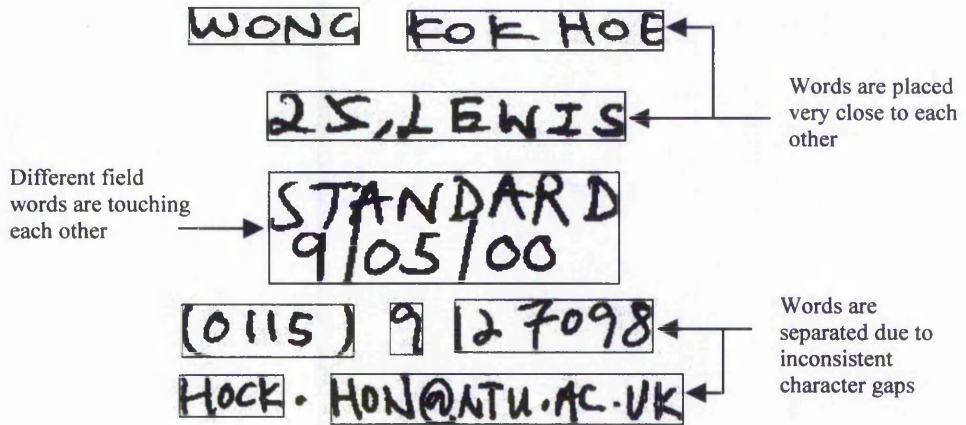 WONG KOK HOE
Words are placed
very close to each
other
25, LEWIS
Different field
words are touching
each other
STANDARD
9/05/00
(0115) 9 127098
Words are
separated due to
inconsistent
character gaps
HOCK.HON@NTU.AC.UK